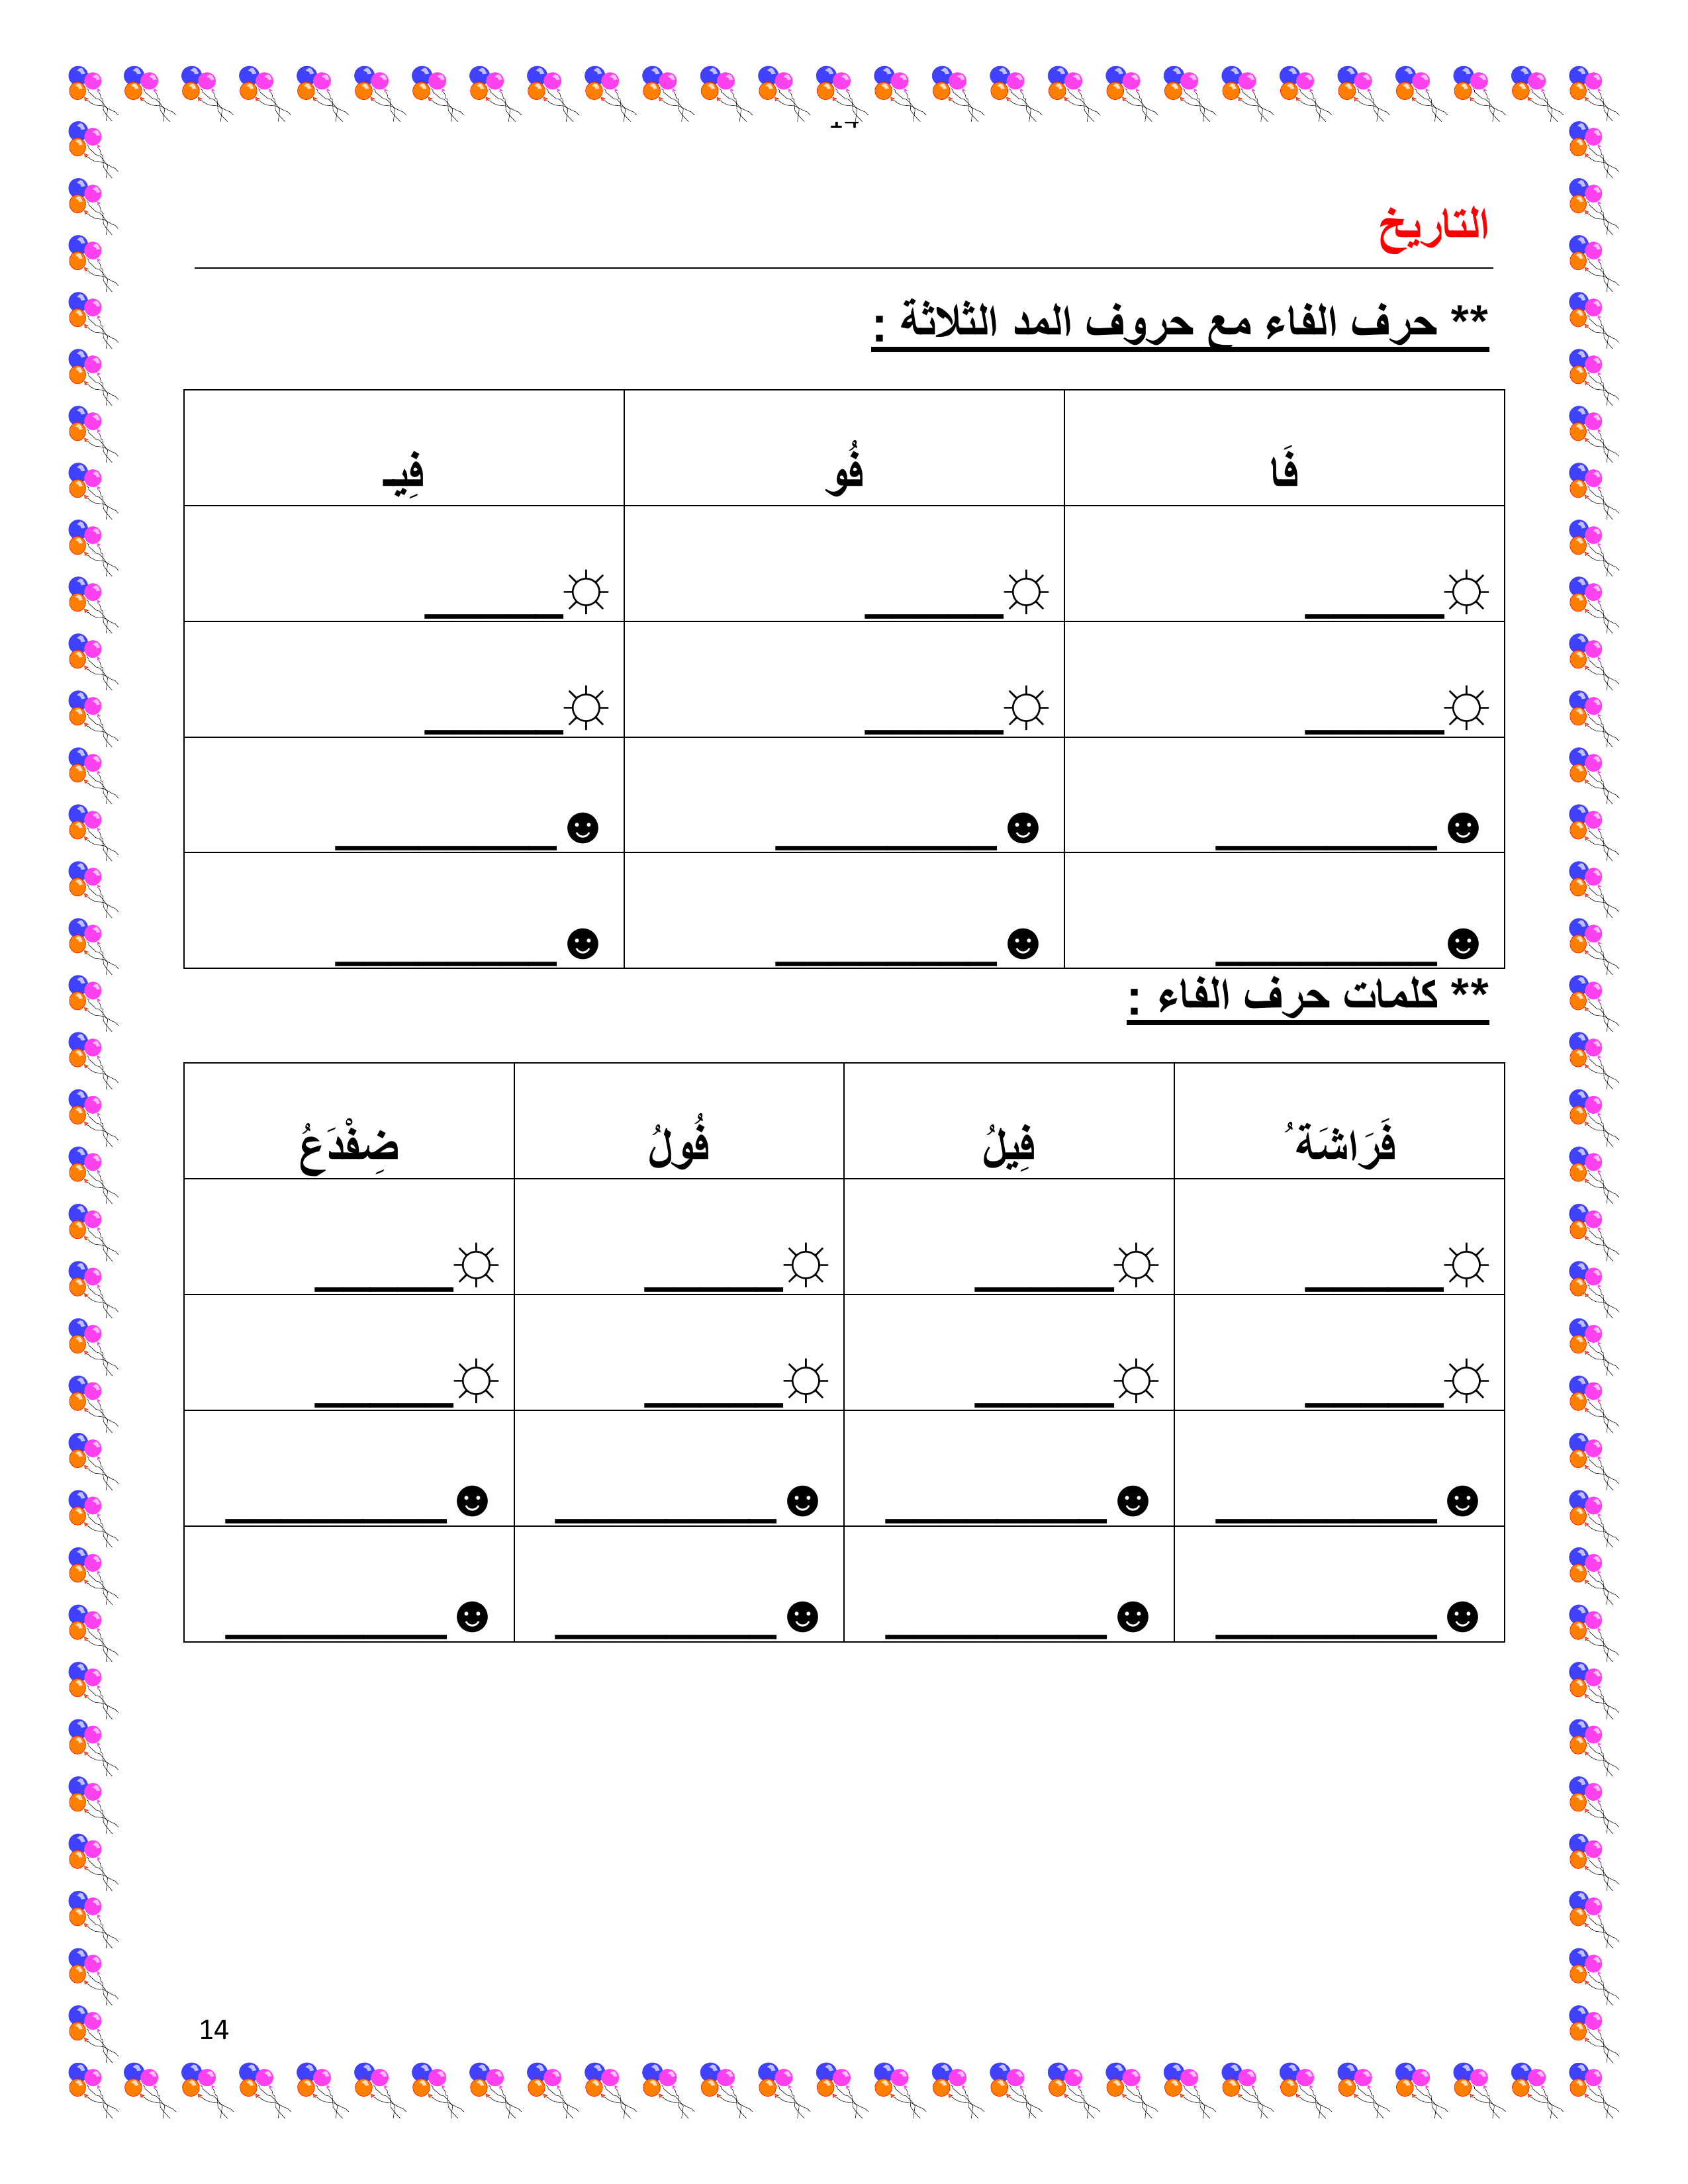 14
التاريخ
** حرف الفاء مع حروف المد الثلاثة :
فَا فُو فِيـ
☼______ ☼______ ☼______
☼______ ☼______ ☼______
☻__________ ☻__________ ☻__________
☻__________ ☻__________ ☻__________
** كلمات حرف الفاء :
فَرَاشَة ُ فِيلُ فُولُ ضِفْدَعُ
☼______ ☼______ ☼______ ☼______
☼______ ☼______ ☼______ ☼______
☻__________ ☻__________ ☻__________ ☻__________
☻__________ ☻__________ ☻__________ ☻__________
14